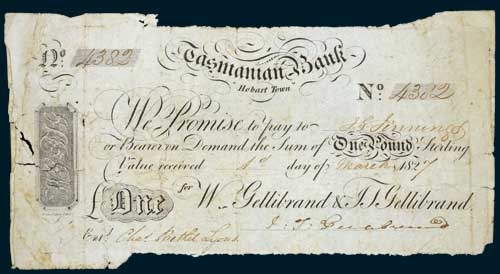 No. 4382
Tasmanian Bank
Hobart Town
No. 4382
We Promise to pay to
or Bearer on Demand the Sum of One Pound Sterling
Value received 1st day of March 1827
for
£ One W. Gellibrand & J.T. Gellibrand.
Entd.